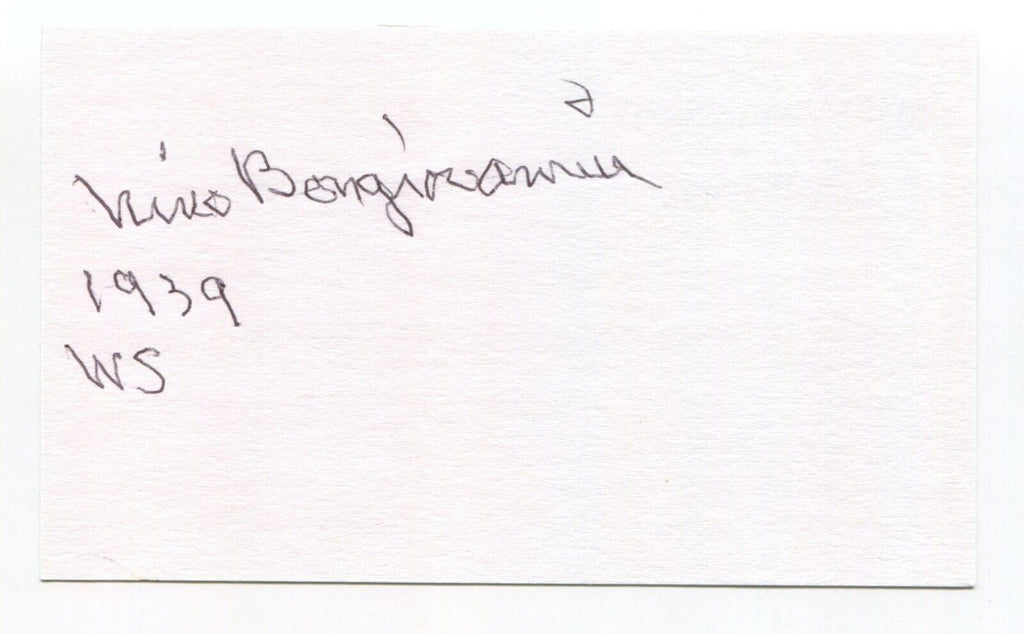 Nino Bongiovanni
1939
WS